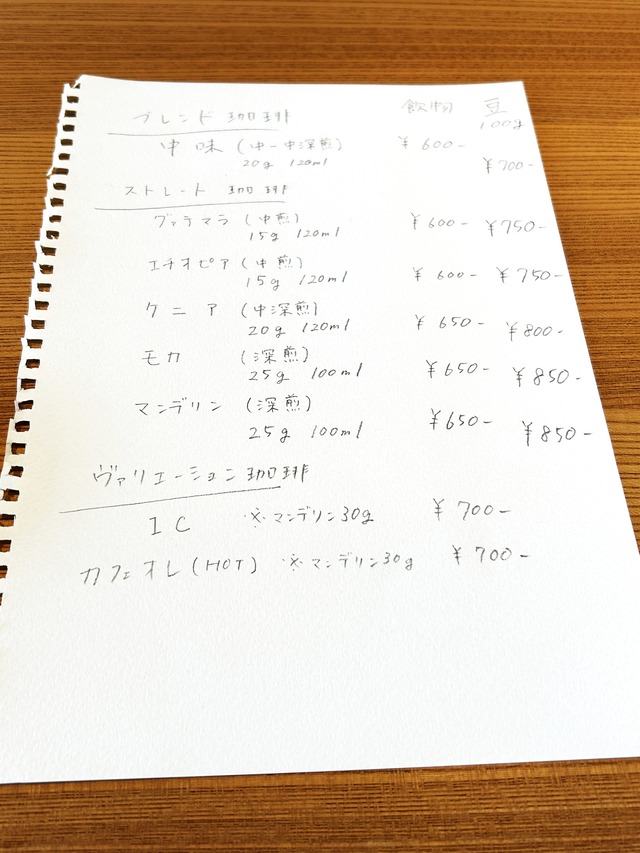 飲物 豆
100g
ブレンド 珈琲
中味 (中－中深煎) ¥600-
20g 120ml ¥700-
ストレート 珈琲
グァテマラ (中煎) ¥600- ¥750-
15g 120ml
エチオピア (中煎) ¥600- ¥750-
15g 120ml
ケニア (中深煎) ¥650- ¥800-
20g 120ml
モカ (深煎) ¥650- ¥850-
25g 100ml
マンデリン (深煎) ¥650- ¥850-
25g 100ml
ヴァリエーション珈琲
IC ※マンデリン30g ¥700-
カフェオレ(HOT) ※マンデリン30g ¥700-